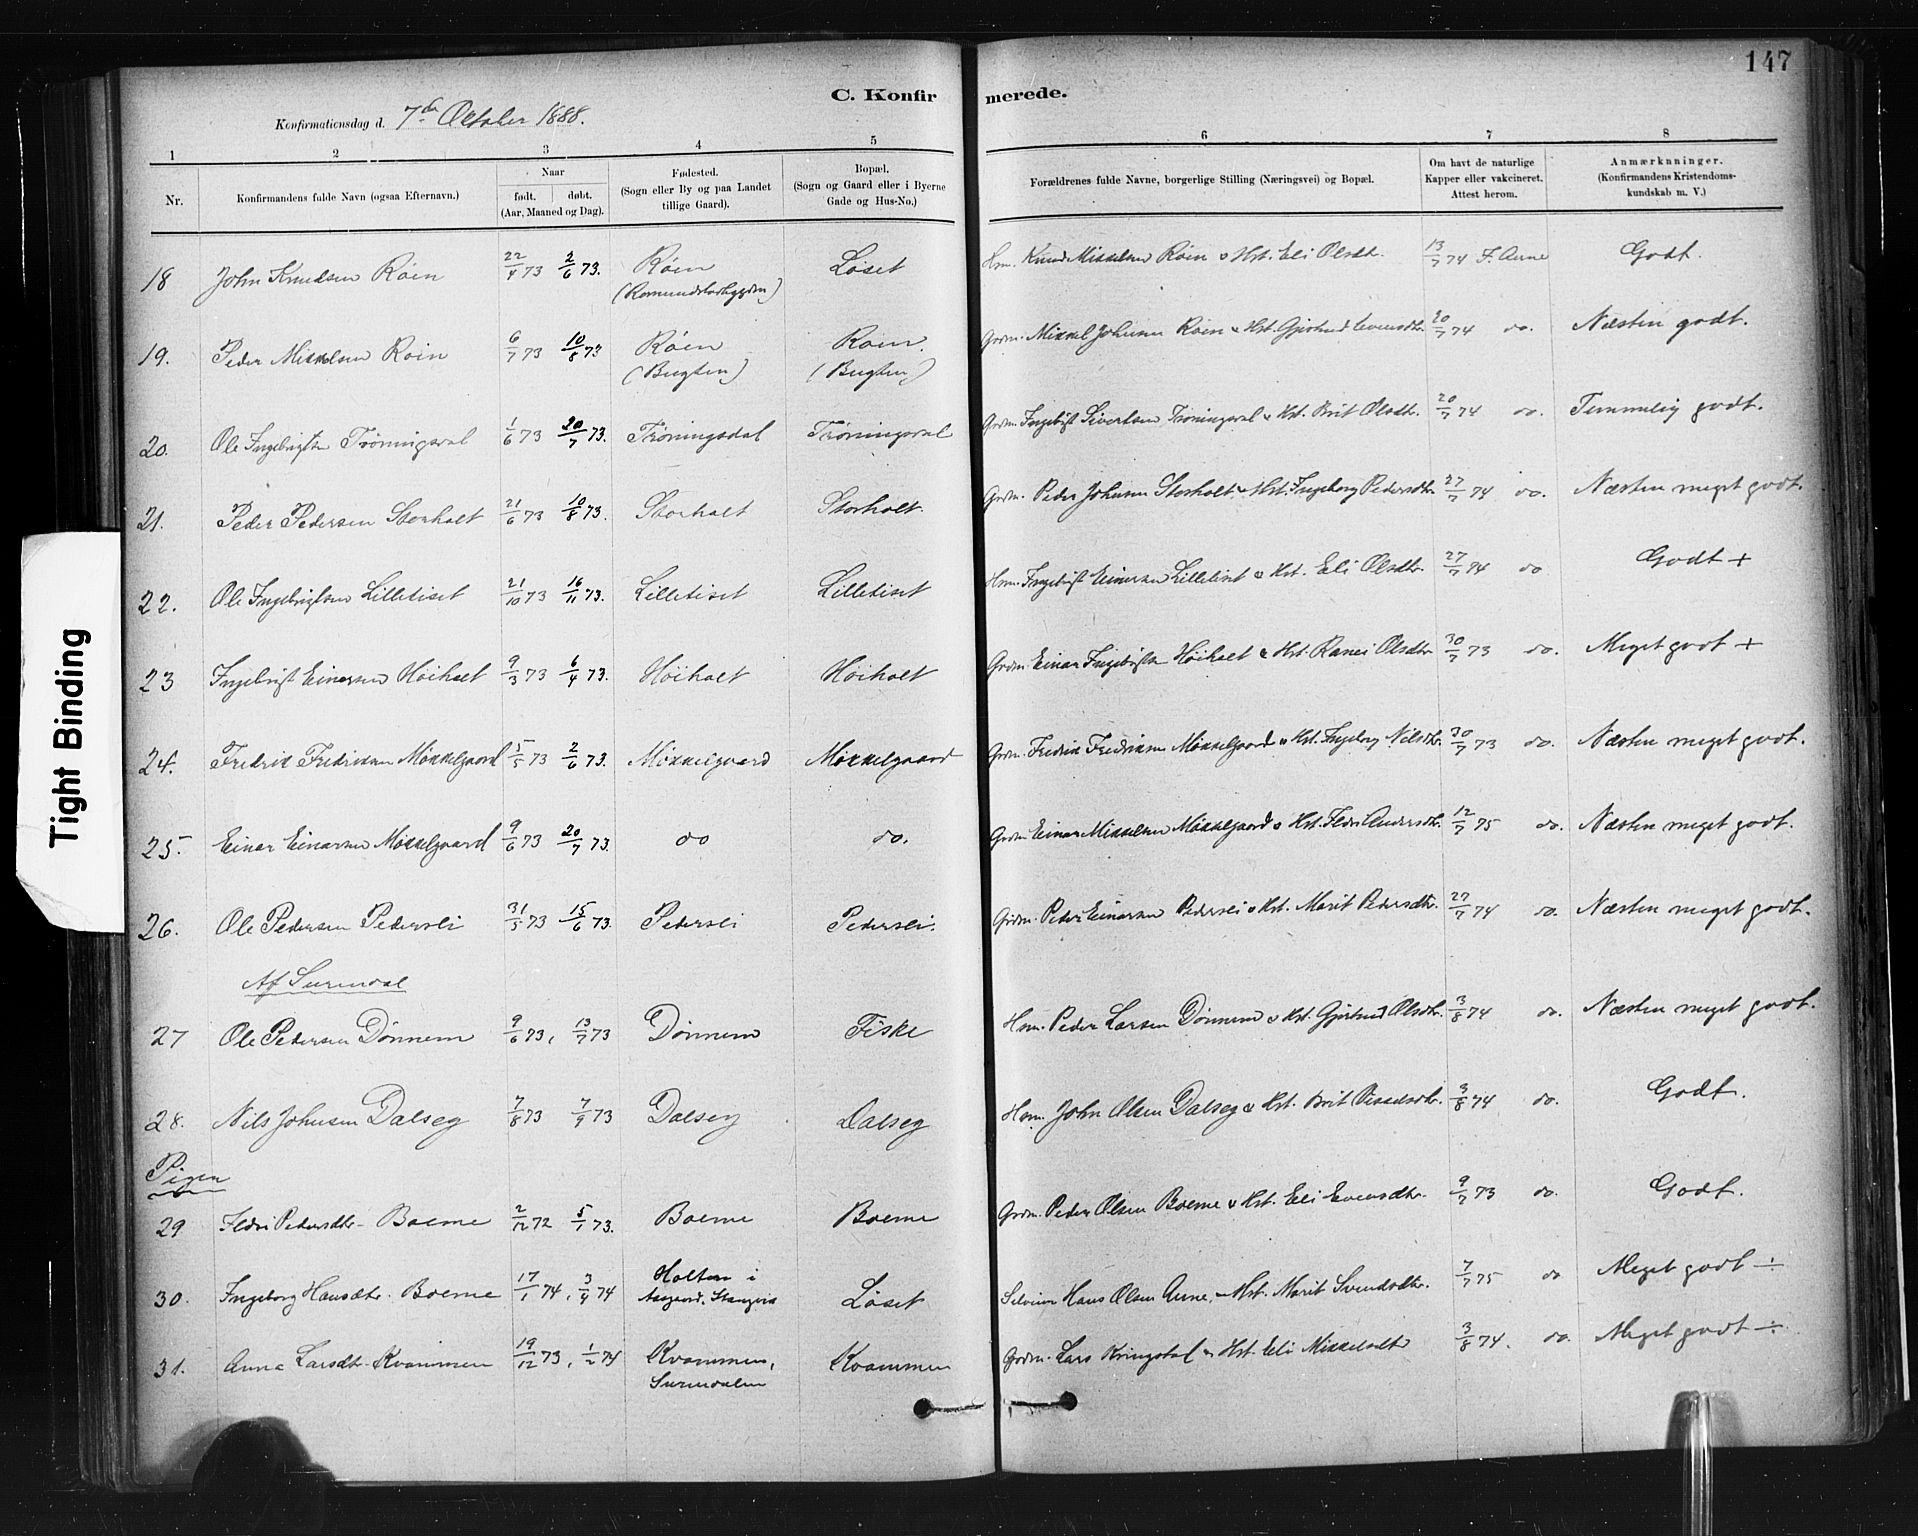 147
C. Konfirmerede.
Konfirmationsdag d. 7de October 1888.
1 2 3 4 5 6 7 8
Nr.
Konfirmandens fulde Navn (ogsaa Efternavn.)
Naar
født. døbt.
(Aar, Maaned og Dag).
Fødested.
(Sogn eller By og paa Landet
tillige Gaard).
Bopæl.
(Sogn og Gaard eller i Byerne
Gade og Hus-No.)
Forældrenes fulde Navne, borgerlige Stilling (Næringsvei) og Bopæl.
Om havt de naturlige
Kapper eller vakcineret.
Attest herom.
Anmærkninger.
(Konfirmandens Kristendoms-
kundskab m. V.)
18 John Knudsen Røen 22/4 73 2/6 73. Røen Løset Hm. Knud Mikkelsen Røen & Kst. Eli Olsdt. 13/7 74 F. Aune Godt.
19. Peder Mikkelsen Roen 6/7 73 10/8 73 Røen (Bugten) Roen. (Bugten) Grdm. Mikkel Johnsen Roen & Kst. Gjertrud Evensdtr. 20/7 74 do. Næsten godt.
20. Ole Ingebrigtsen Trøningsdal 1/6 73 20/7 73. Trøningsdal Trøningsdal Grdm. Ingebrigt Sivertsen Trøningsdal & Kst. Brit Olsdtr. 20/7 74 do. Temmelig godt.
21. Peder Pedersen Storholt 21/6 73 10/8 73. Storholt Storholt. Grdm. Peder Johnsen Storholt & Kst. Ingeborg Pedersdtr. 27/7 74 do. Næsten meget godt.
22. Ole Ingebrigtsen Lilletiset 21/10 73 16/11 73. Lilletiset Lilletiset Hsm. Ingebrigt Einersen Lilletiset & Kst. Eli Olsdtr. 27/7 74 do Godt +
23 Ingebrigt Einersen Høiholt 9/3 73 6/4 73. Høiholt Høiholt Grdm. Einar Ingebrigtsen Høiholt & Kst. Ranei Olsdtr 30/7 73 do. Meget godt +
24. Fredrik Fredriksen Mökkelgaard 5/5 73 2/6 73. Mökkelgaard Mökkelgaard Grdm. Fredrik Fredriksen Mökkelgaard & Kst. Ingeborg Nilsdtr. 30/7 73 do. Næsten meget godt.
25. Einar Einarsen Mökkelgaard 9/6 73 20/7 73. do do. Grdm. Einar Mikkelsen Mökkelgaard & Kst. Ildri Andersdtr. 12/7 75 do. Næsten meget godt.
26. Ole Pedersen Pedersli 31/5 73 15/6 73. Pedersli Pedersli. Grdm. Peder Einarsen Pedersli & Kst. Marit Pedersdtr. 27/7 74 do. Næsten meget godt.
Af Surendal
27 Ole Pedersen Dönnem 9/6 73, 13/7 73 Dönnem Fiske Hsm. Peder Larsen Dönnem & Kst. Gjertrud Olsdtr. 3/8 74 do. Næsten meget godt.
28. Nils Johnsen Dalseg 7/8 73 7/9 73 Dalseg Dalseg Hsm. John Olsen Dalseg & Kst. Brit 3/8 74 do. Godt.
Piger
29 Ildri Pedersdtr. Boeme 2/12 72 5/1 73. Boeme Boeme Grdm. Peder Olsen Boeme & Kst. Eli Evensdtr. 9/7 73 do. Godt.
30. Ingeborg Hansdtr. Boeme 17/1 74, 3/4 74 Holten i Aasgaard, Stangvik Løset Selveier Hans Olsen Aune, Kst. Marit Svendsdtr. 7/7 75 do Meget godt ÷
31. Anna Larsdtr. Kvammen 19/12 73, 1/2 74 Kvammen, Surendalen Kvammen Grdm. Lars Kringstal & Kst. Eli Mikkelsdtr 3/8 74. do. Meget godt ÷
Tight Binding